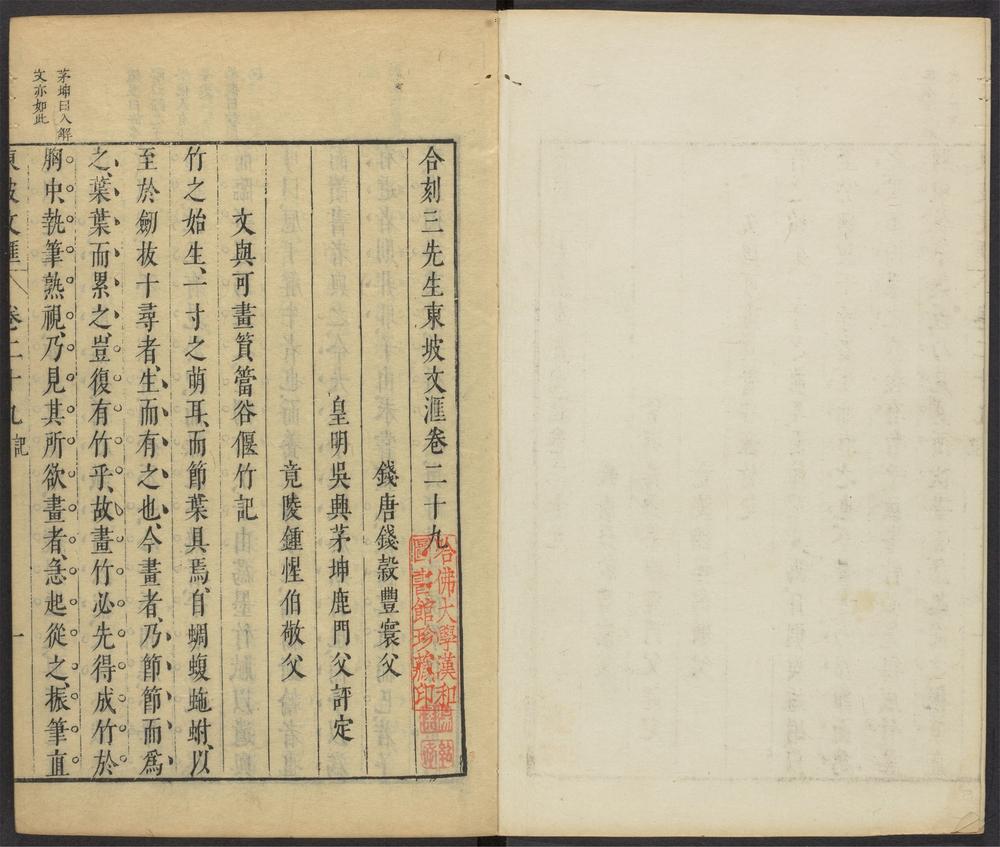 合刻三先生東坡文滙卷二十九
錢唐錢穀豐寰父
皇明吳興茅坤鹿門父評定
竟陵鍾惺伯敬父
文與可畫篔簹谷偃竹記
竹之始生、一寸之萌耳、而節葉具焉、自蜩蝮虵蚹、以
至於劒拔十尋者、生而有之也、今畫者、乃節節而爲
之、葉葉而累之、豈復有竹乎、故畫竹必先得成竹於
胸中、執筆熟視、乃見其所欲畫者、急起從之、振筆直
茅坤曰入解
文亦如此
東坡文滙 卷二十九 記 一
哈佛大學漢和
圖書館珍藏印